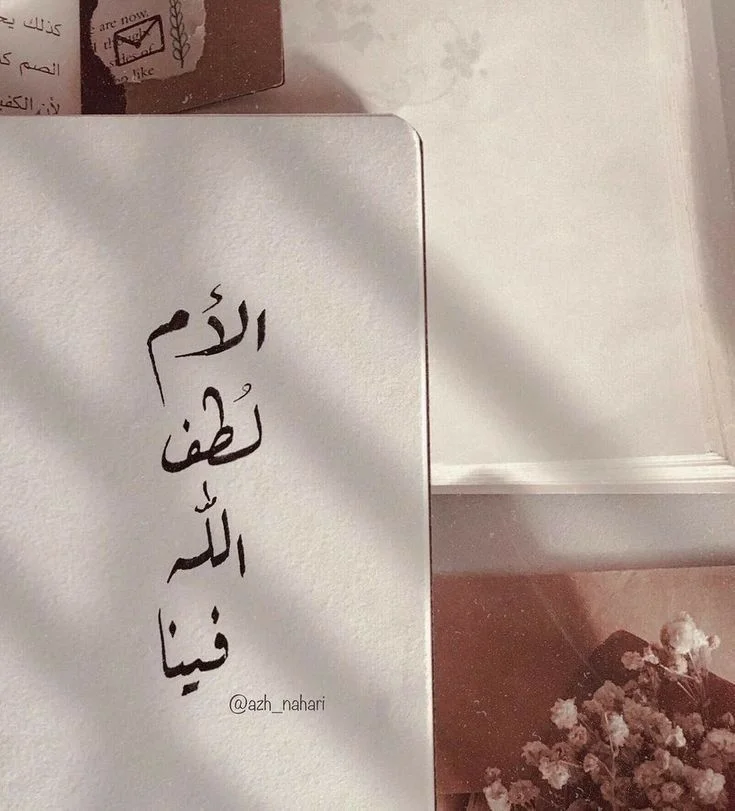 كذلك
الصم
لأن
are now.
like
الأَم
لُطف
اللّٰه
فينا
@azh_nahari